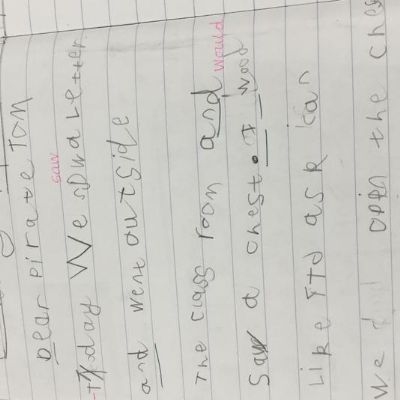 Dear Pirate Tom
saw
Today We sow a Letter.
and went outside
The class room and
would
Saw a chest. I wood
Like ask can
We open the ches